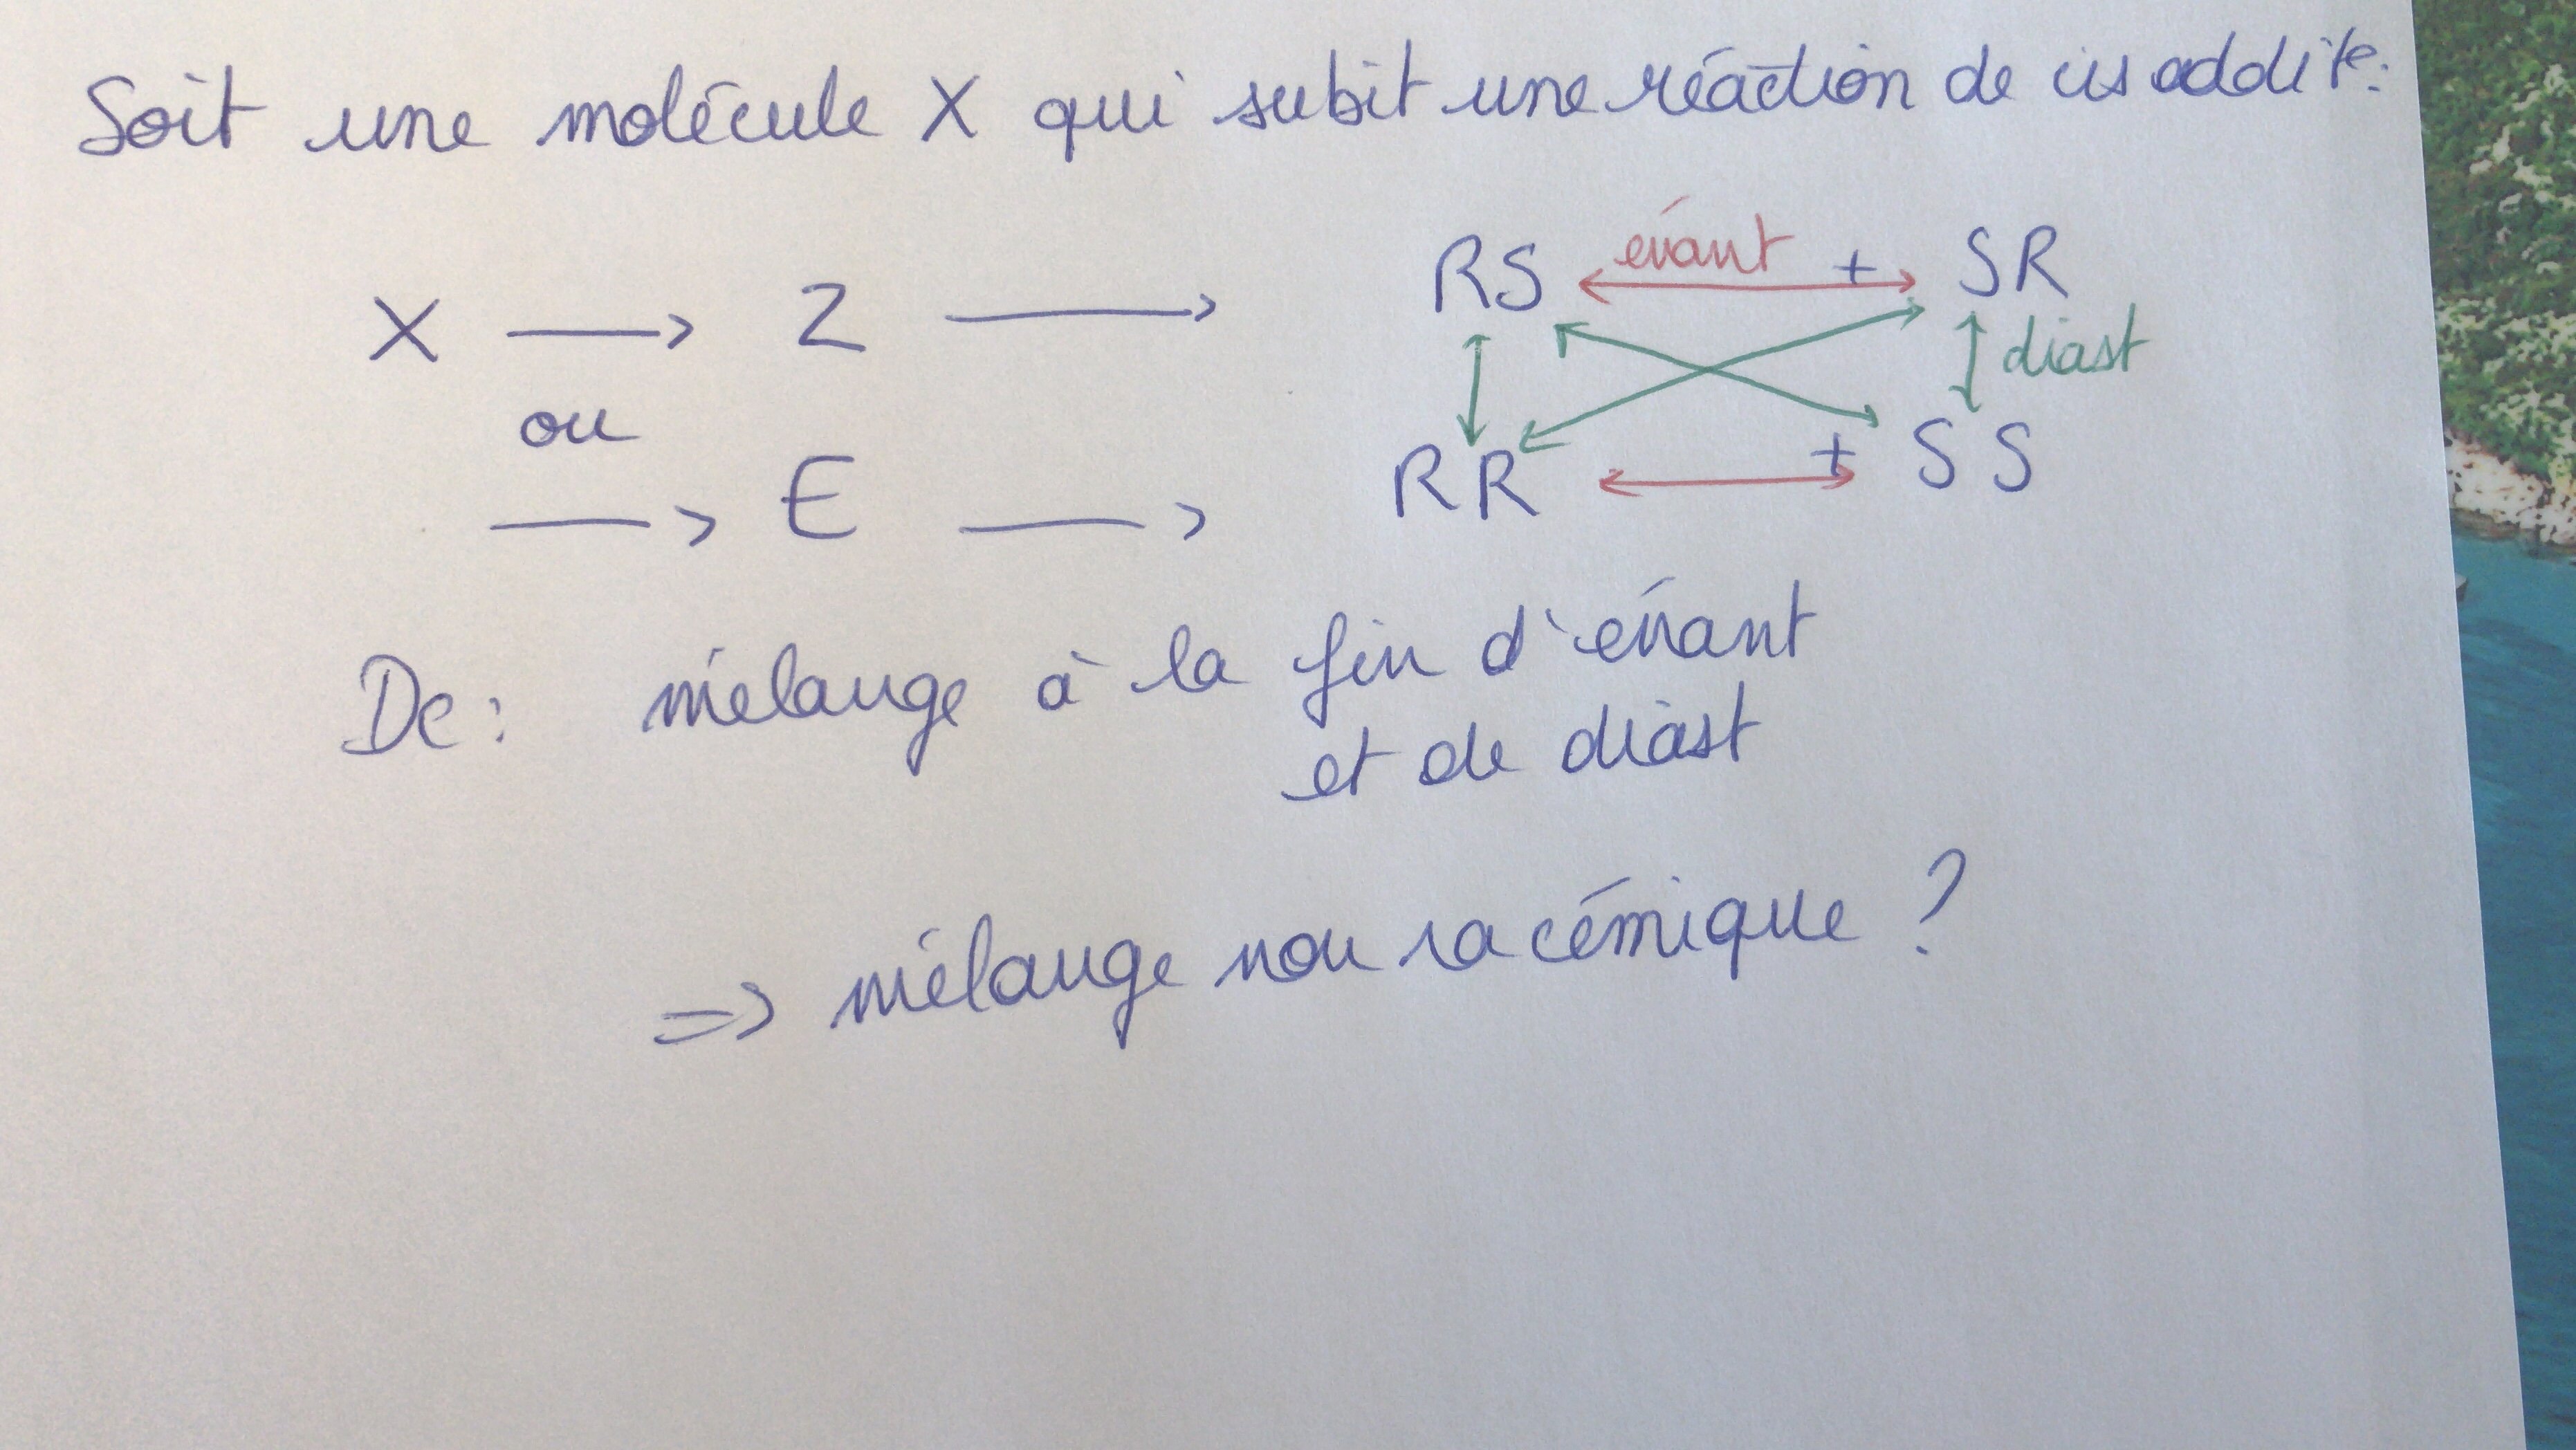 Soit une molécule X qui subit une réaction de cis addit°:
RS énant + SR
X → Z →
diast
ou
→ E → RR + SS
Dc: mélange à la fin d'énant
et de diast
=> mélange non racémique ?